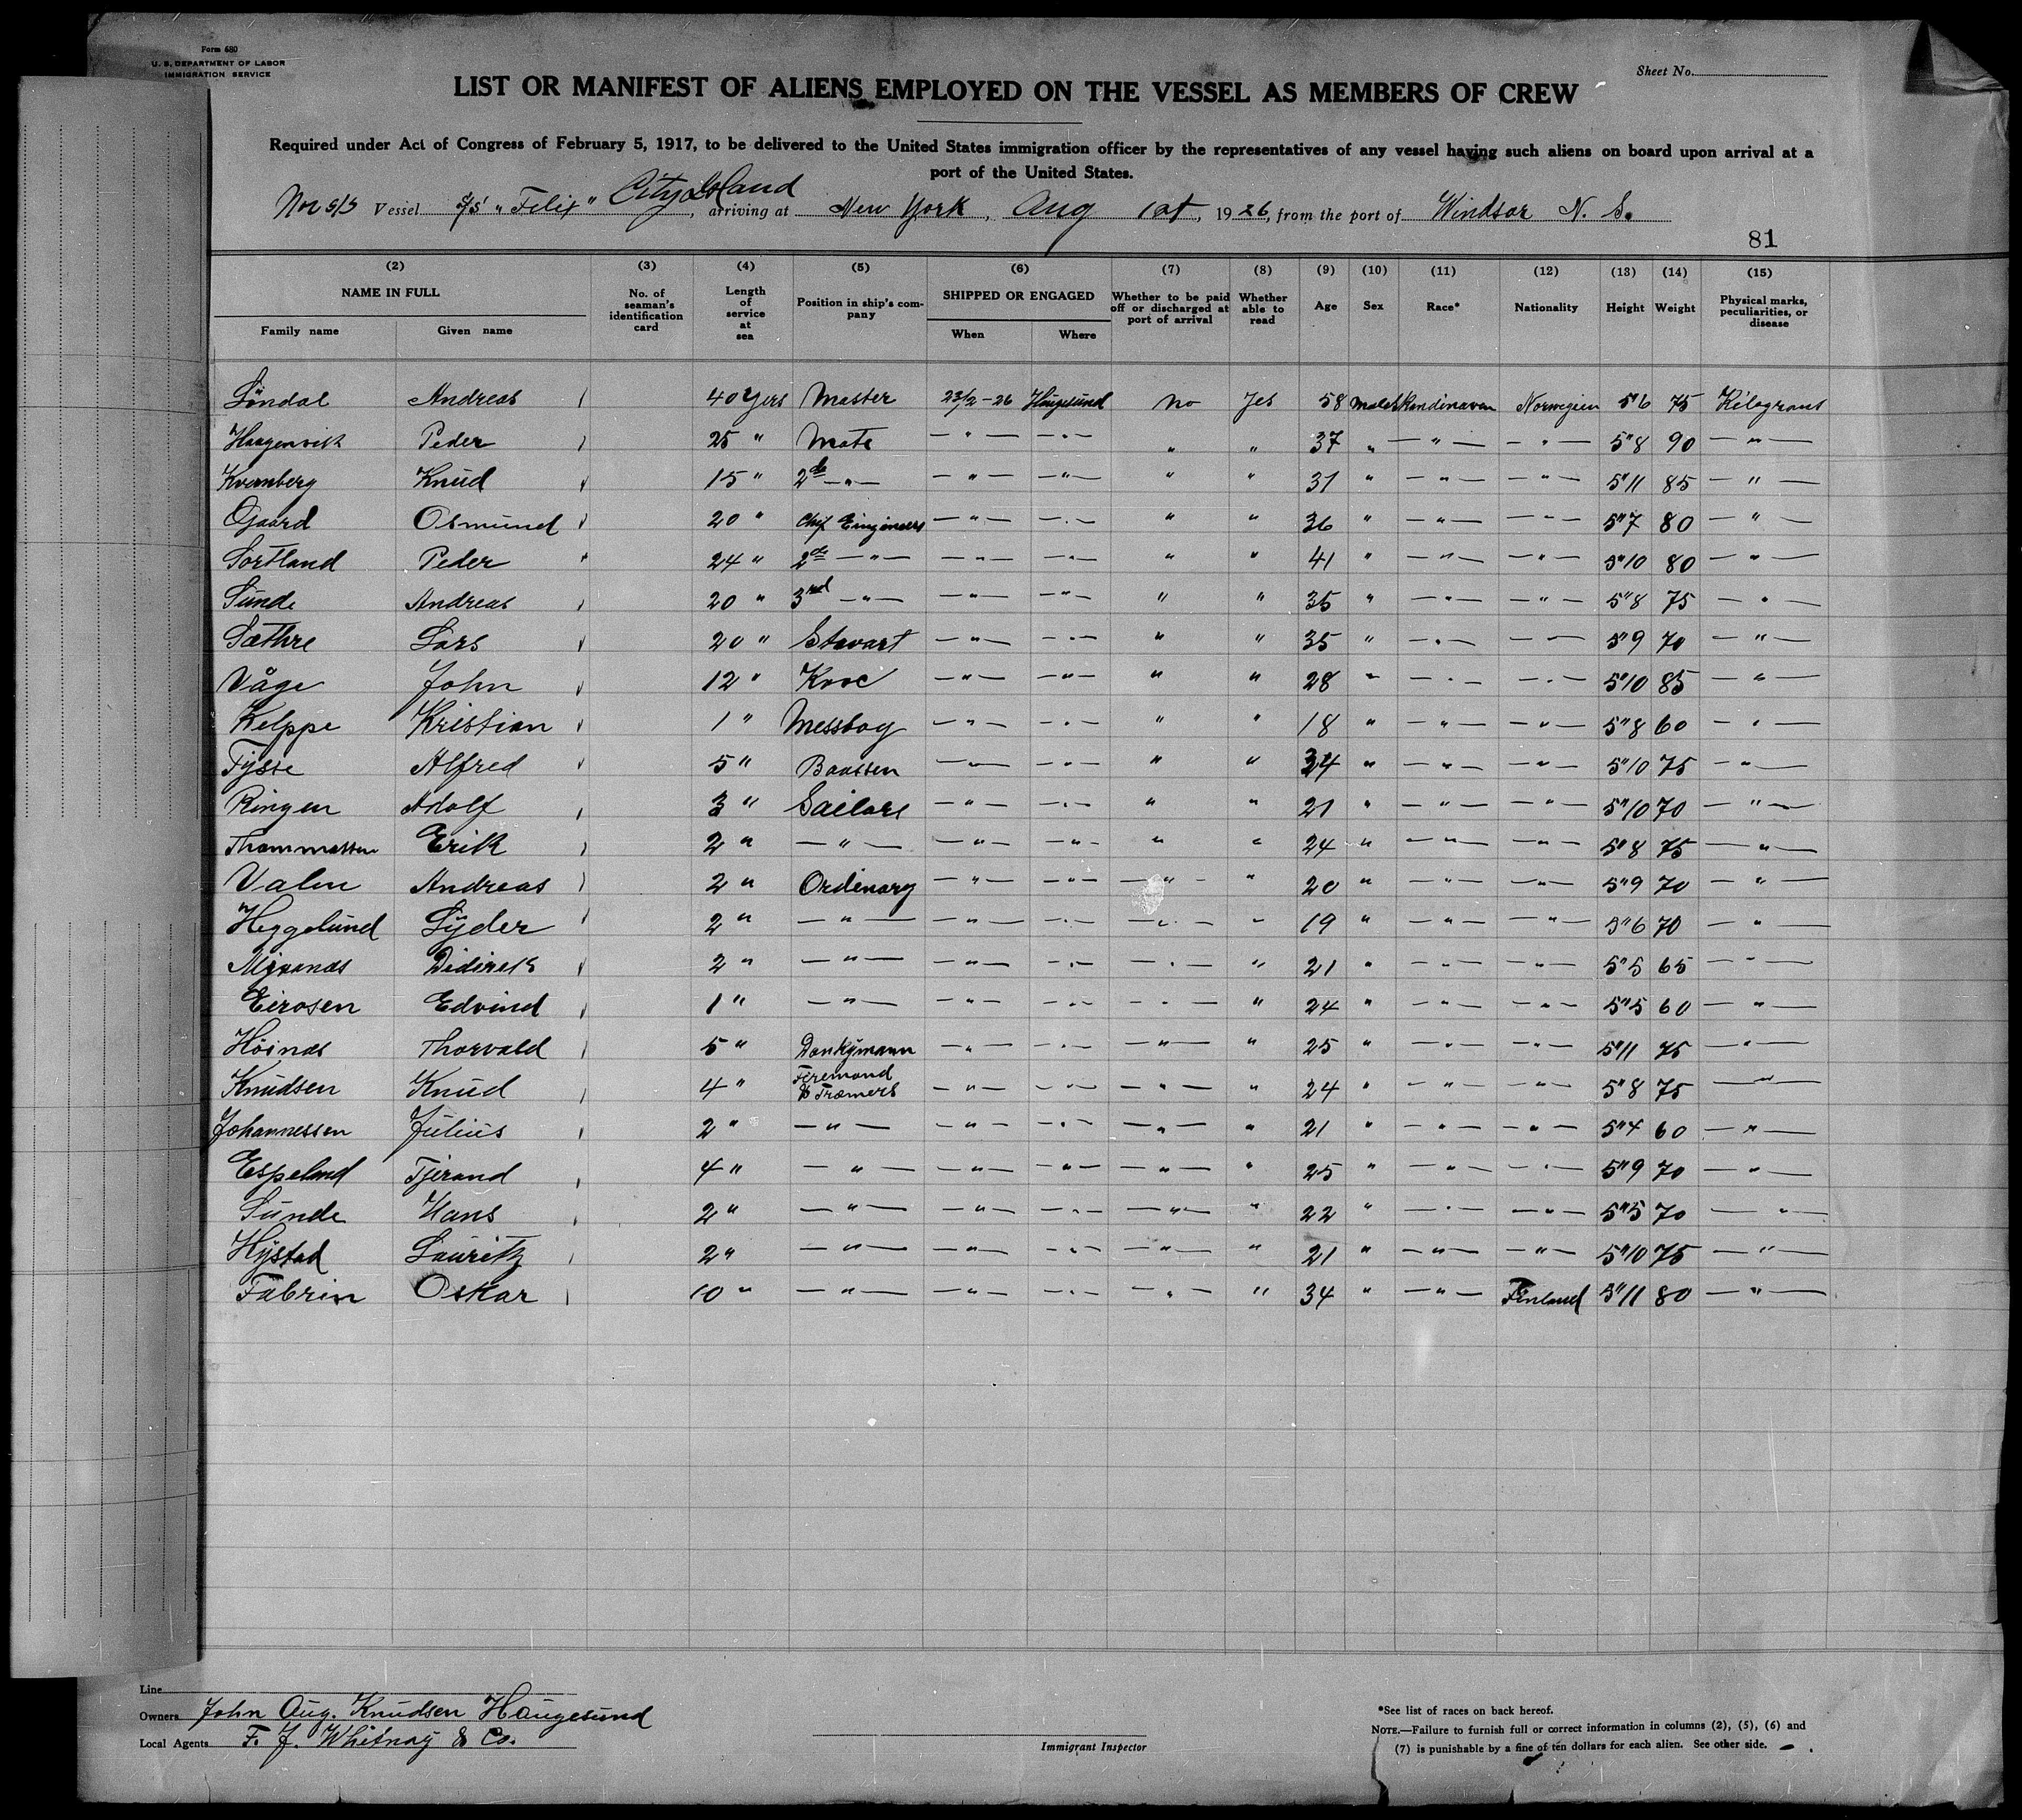 Form 680
U. S. DEPARTMENT OF LABOR
IMMIGRATION SERVICE
Sheet No.
LIST OR MANIFEST OF ALIENS EMPLOYED ON THE VESSEL AS MEMBERS OF CREW
Required under Act of Congress of February 5, 1917, to be delivered to the United States immigration officer by the representatives of any vessel having such aliens on board upon arrival at a
port of the United States.
Nor s/s Vessel s/s "Felix" City Island, arriving at New York, Aug 1st, 1926, from the port of Windsor N. S.
81
(2) (3) (4) (5) (6) (7) (8) (9) (10) (11) (12) (13) (14) (15)
NAME IN FULL No. of seaman's identification card Length of service at sea Position in ship's company SHIPPED OR ENGAGED Whether to be paid off or discharged at port of arrival Whether able to read Age Sex Race* Nationality Height Weight Physical marks, peculiarities, or disease
Family name Given name When Where
Söndal Andreas 40 Yers Master 23/2-26 Haugesund No Yes 58 Male Skandinaven Norwegien 5"6 75 Kilograms
Haagenvik Peder 25 " Mate — " — — " — " " 37 " — " — — " — 5"8 90 — " —
Kvernberg Knud 15 " 2de — " — — " — — " — " " 31 " — " — — " — 5"11 85 — " —
Gaard Osmund 20 " Chif Eingineers — " — — " — " " 36 " — " — — " — 5"7 80 — " —
Sortland Peder 24 " 2de — " — — " — — " — " " 41 " — " — — " — 5"10 80 — " —
Sunde Andreas 20 " 3rd — " — — " — — " — " " 35 " — " — — " — 5"8 75 — " —
Sæthre Lars 20 " Stavart — " — — " — " " 35 " — " — — " — 5"9 70 — " —
Våge John 12 " Kooc — " — — " — " " 28 " — " — — " — 5"10 85 — " —
Kelppe Kristian 1 " Messboy — " — — " — " " 18 " — " — — " — 5"8 60 — " —
Tysse Alfred 5 " Baatsen — " — — " — " " 34 " — " — — " — 5"10 75 — " —
Ringen Adolf 3 " Sailors — " — — " — " " 21 " — " — — " — 5"10 70 — " —
Thommassen Erik 2 " — " — — " — — " — " " 24 " — " — — " — 5"8 75 — " —
Valen Andreas 2 " Ordinary — " — — " — — " — " 20 " — " — — " — 5"9 70 — " —
Heggelund Lyder 2 " — " — — " — — " — — " — " 19 " — " — — " — 5"6 70 — " —
2 " — " — — " — — " — — " — " 21 " — " — — " — 5"5 65 — " —
Eirosen Edvind 1 " — " — — " — — " — — " — " 24 " — " — — " — 5"5 60 — " —
Höinas Thorvald 5 " Donkymann — " — — " — — " — " 25 " — " — — " — 5"11 75 — " —
Knudsen Knud 4 " Firemand & Træmers — " — — " — — " — " 24 " — " — — " — 5"8 75 — " —
Johannessen Julius 2 " — " — — " — — " — — " — " 21 " — " — — " — 5"4 60 — " —
Espeland Tjerand 4 " — " — — " — — " — — " — " 25 " — " — — " — 5"9 70 — " —
Sunde Hans 2 " — " — — " — — " — — " — " 22 " — " — — " — 5"5 70 — " —
Hystad Lauritz 2 " — " — — " — — " — — " — " 21 " — " — — " — 5"10 75 — " —
Fabrin Oskar 10 " — " — — " — — " — — " — " 34 " — " — Finland 5"11 80 — " —
Line
Owners John Aug. Knudsen Haugesund
Local Agents F. J. Whitnay & Co.
Immigrant Inspector
*See list of races on back hereof.
NOTE.—Failure to furnish full or correct information in columns (2), (5), (6) and
(7) is punishable by a fine of ten dollars for each alien. See other side.